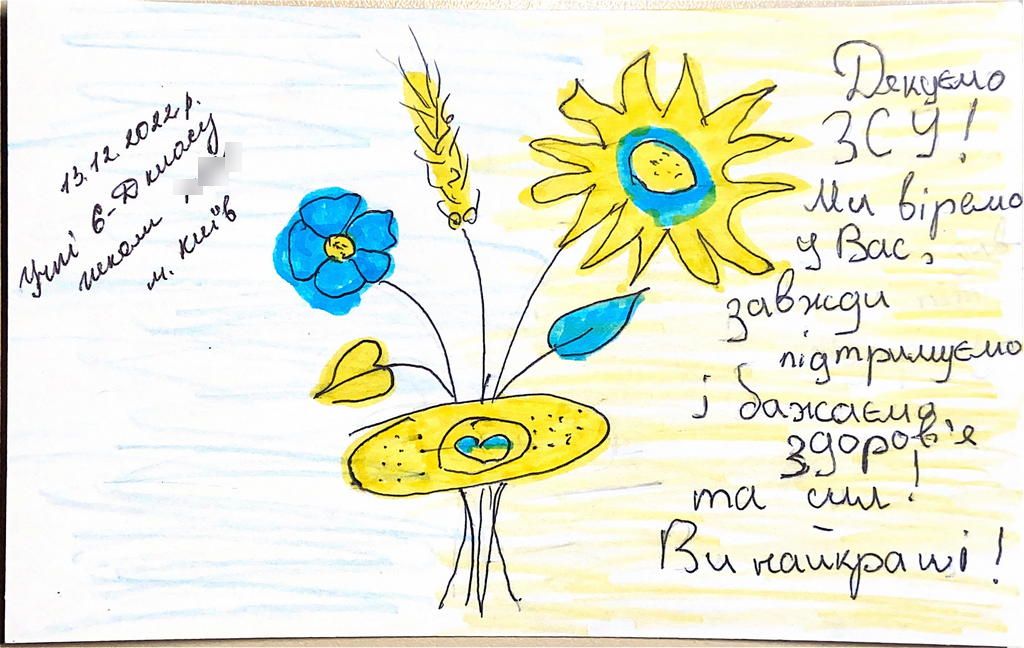 13.12.2022 р.
Учні 6-Д класу
школи
м. Київ
Дякуємо
ЗСУ!
Ми віремо
у Вас,
завжди
підтримуємо
і бажаємо
здоров'я
та сил!
Ви найкращі!